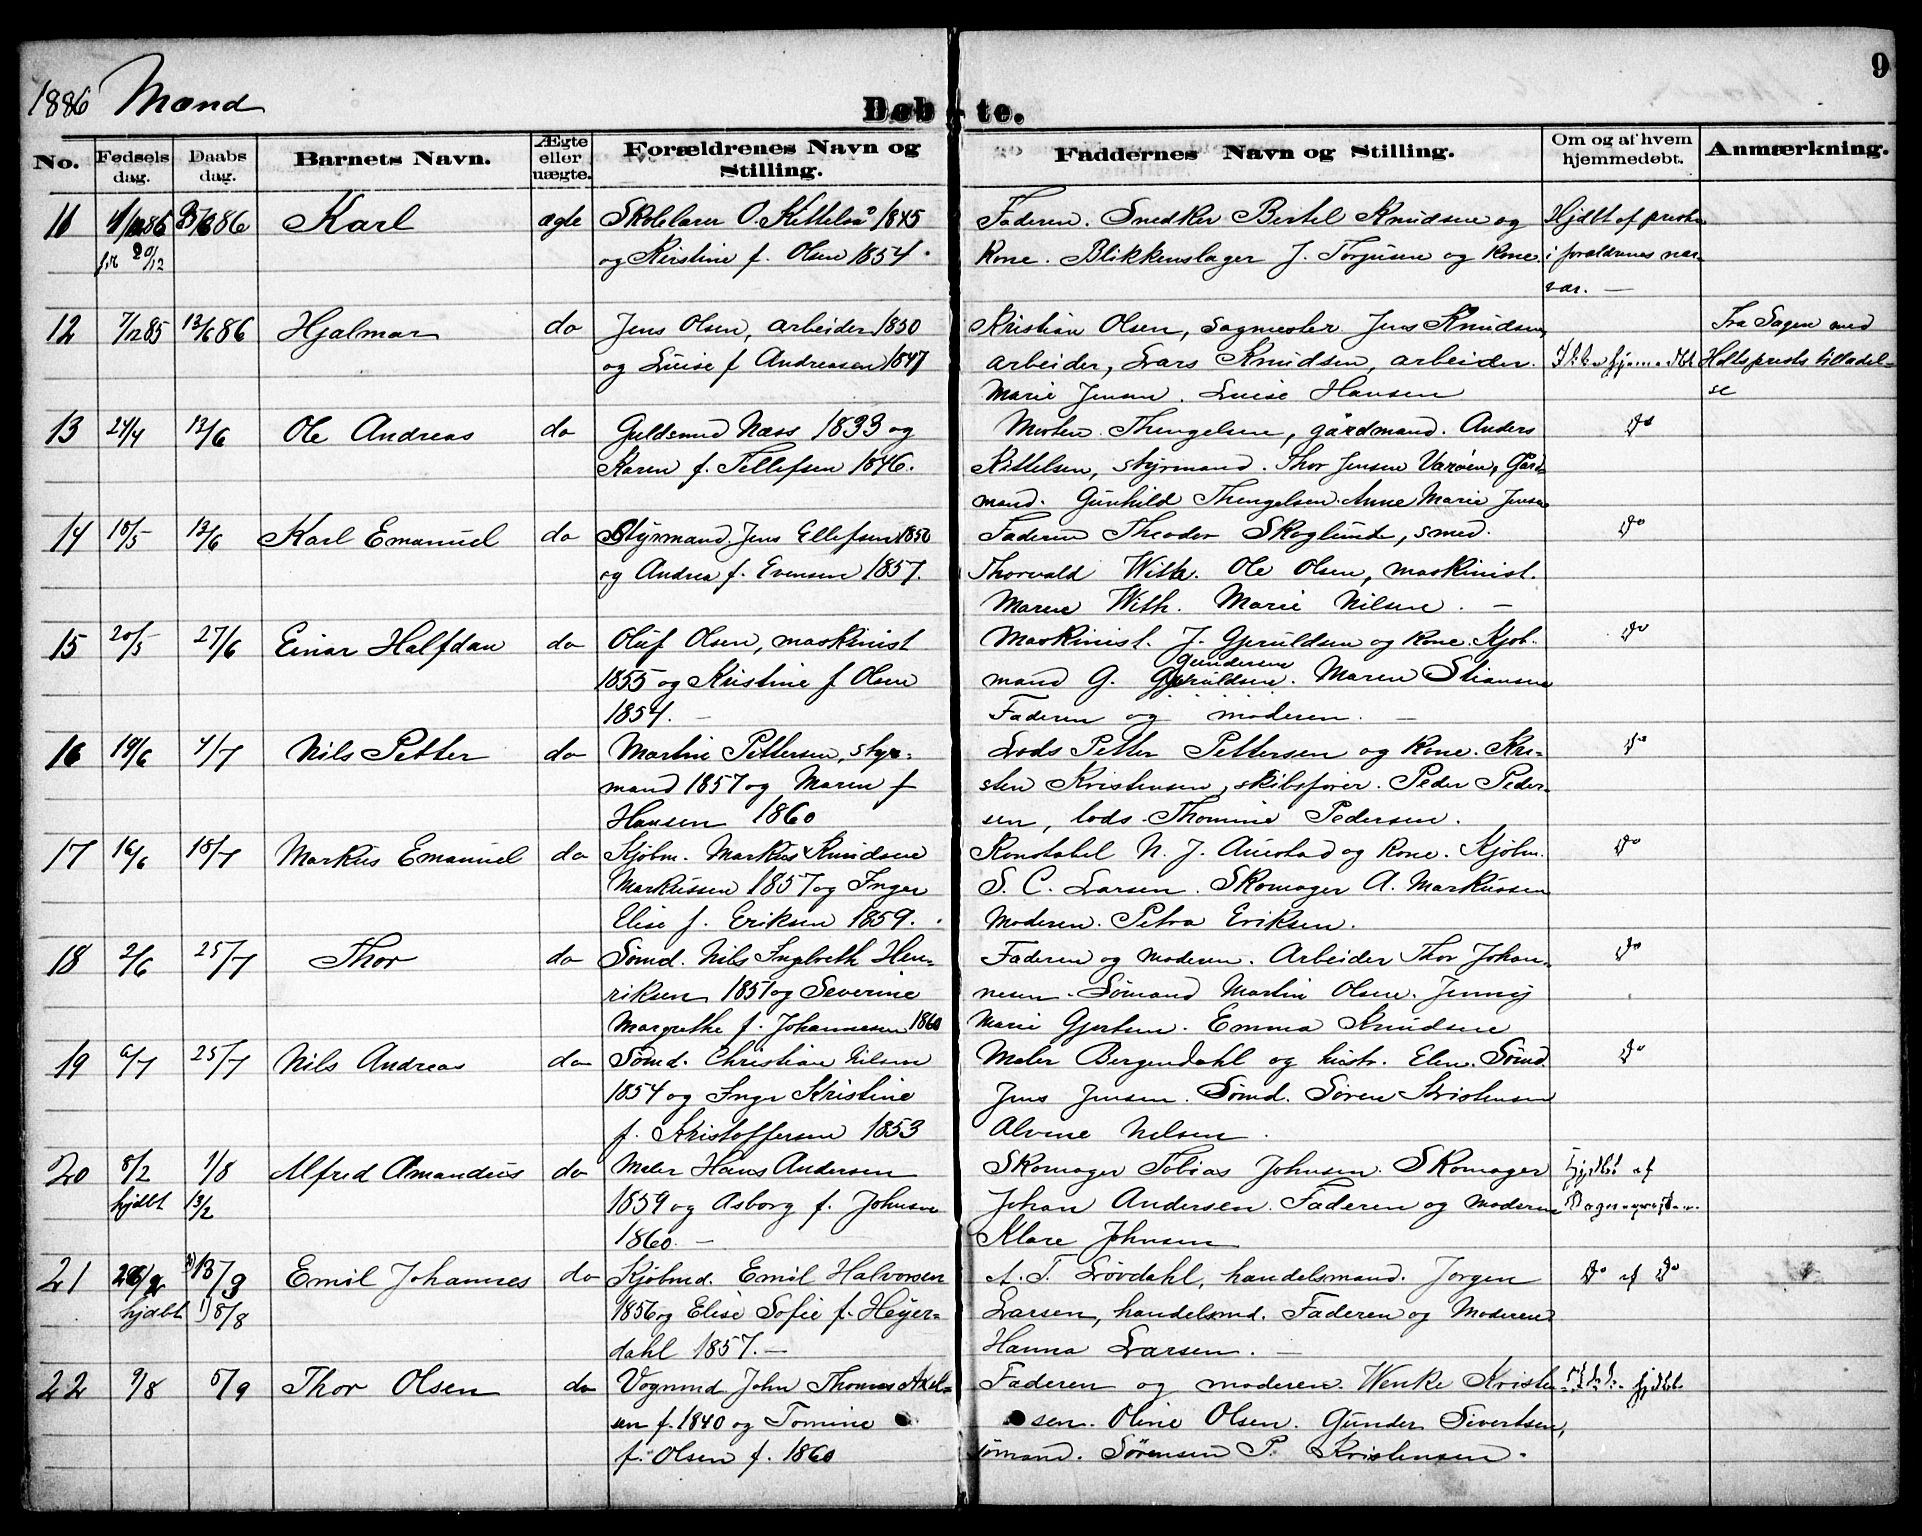 1886 Mænd
Døb-te.
9
No. Fødsels dag. Daabs dag. Barnets Navn. Ægte eller uægte. Forældrenes Navn og Stilling. Faddernes Navn og Stilling. Om og af hvem hjemmedøbt. Anmærkning.
11 86 Karl ægte Skolelærer O. Kittelså 1845 Faderen. Snedker Bertel Knudsen og Hjdbt af presten
20/12 og Kirstine f. Olsen 1854. Kone. Blikkenslager J. Torjusen og Kone. i forældrenes nær-
vær. —
12 7/12 85 13/6 86 Hjalmar do Jens Olsen, arbeider 1850 Kristian Olsen, sagmester Jens Knudsen, Fra Sagen med
og Luise f Andreasen 1847 arbeider, Lars Knudsen, arbeider. Ikke hjemmedbt Holts prests tilladel-
Marie Jensen. Luise Hansen se
13 24/4 13/6 Ole Andreas do Guldsmed Næss 1833 og Morten Thengelsen, gårdmand. Anders Do
Karen f. Tellefsen 1846. Kittelsen, styrmand. Thor Jensen Varöen, Gård-
mand. Gunhild Thengelsen. Anne Marie Jensen
14 18/5 13/6 Karl Emanuel do Styrmand Jens Ellefsen 1850 Faderen Theodor Skoglund, smed. Do
og Andrea f. Evensen 1857. Thorvald With. Ole Olsen, maskinist.
Maren With. Marie Nilsen. —
15 20/5 27/6 Einar Halfdan do Oluf Olsen, maskinist Maskinist J. Gjeruldsen og Kone. Kjöb- Do
1855 og Kristine f Olsen mand G. Gundersen Gjeruldsen. Maren Stiansen
1854. — Faderen og moderen. —
16 19/6 4/7 Nils Petter do Martin Pettersen, styr- Lods Petter Pettersen og Kone. Kri- Do
mand 1857 og Maren f sten Kristensen, skibsförer. Peder Peder-
Hansen 1860 sen, lods. Thomine Pedersen.
17 16/6 18/7 Markus Emanuel do Kjöbm. Markus Knudsen Konstabel N. J. Auestad og Kone. Kjöbm. Do
Markussen 1857 og Inger S. C. Larsen. Skomager A. Markussen
Elise f. Eriksen 1859. Moderen. Petra Eriksen.
18 2/6 25/7 Thor do Sömd. Nils Ingebreth Hen- Faderen og moderen. Arbeider Thor Johan- Do
riksen 1851 og Severine nesen. Sömand Martin Olsen. Jenny
Margrethe f. Johannesen 1860 Marie Gjertsen. Emma Knudsen
19 6/7 25/7 Nils Andreas do Sömd. Christian Nilsen Maler Bergendahl og hustr. Elen. Sömd. Do
1854 og Inger Kristine Jens Jensen. Sömd. Sören Kristensen
f. Kristoffersen 1853 Alvine Nilsen.
20 8/2 1/8 Alfred Amandus do Maler Hans Andersen Skomager Tobias Johnsen. Skomager Hjdbt af
hjdbt 13/2 1859 og Asborg f. Johnsen Johan Andersen. Faderen og Moderen
1860. — Klare Johnsen
21 Emil Johannes do Kjöbmd. Emil Halvorsen A. T. Lövdahl, handelsmand. Jörgen Do af Do
hjdbt 1) 8/8 1856 og Elise Sofie f. Heyer- Larsen, handelsmd. Faderen og Moderen
dahl 1857. — Hanna Larsen. —
22 9/8 5/9 Thor Olsen do Vognmd John Thomas Axel- Faderen og moderen. Wenke Kristen- Ikke hjdbt
sen f. 1840 og Tomine sen. Oline Olsen. Gunder Sivertsen,
f. Olsen f. 1860 sömand. Sörensen P. Kristensen.